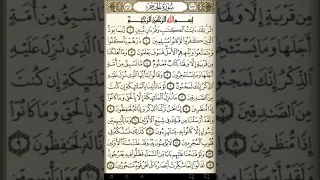 سُورَةُ الحِجْرِ
بِسْمِ اللَّهِ الرَّحْمَٰنِ الرَّحِيمِ
الٓر تِلْكَ ءَايَٰتُ الْكِتَٰبِ وَقُرْءَانٍ مُّبِينٍ ١ رُّبَمَا يَوَدُّ
الَّذِينَ كَفَرُوا۟ لَوْ كَانُوا۟ مُسْلِمِينَ ٢ ذَرْهُمْ يَأْكُلُوا۟
وَيَتَمَتَّعُوا۟ وَيُلْهِهِمُ الْأَمَلُ فَسَوْفَ يَعْلَمُونَ ٣ وَمَآ أَهْلَكْنَا
مِن قَرْيَةٍ إِلَّا وَلَهَا كِتَابٌ مَّعْلُومٌ ٤ مَّا تَسْبِقُ مِنْ أُمَّةٍ
أَجَلَهَا وَمَا يَسْتَـْٔخِرُونَ ٥ وَقَالُوا۟ يَٰٓأَيُّهَا الَّذِى نُزِّلَ عَلَيْهِ
الذِّكْرُ إِنَّكَ لَمَجْنُونٌ ٦ لَّوْ مَا تَأْتِينَا بِالْمَلَٰٓئِكَةِ إِن كُنتَ
مِنَ الصَّٰدِقِينَ ٧ مَا نُنَزِّلُ الْمَلَٰٓئِكَةَ إِلَّا بِالْحَقِّ وَمَا كَانُوٓا۟
إِذًا مُّنظَرِينَ ٨ إِنَّا نَحْنُ نَزَّلْنَا الذِّكْرَ وَإِنَّا لَهُۥ لَحَٰفِظُونَ ٩
وَلَقَدْ أَرْسَلْنَا مِن قَبْلِكَ فِى شِيَعِ الْأَوَّلِينَ ١٠ وَمَا يَأْتِيهِم مِّن
رَّسُولٍ إِلَّا كَانُوا۟ بِهِۦ يَسْتَهْزِءُونَ ١١ كَذَٰلِكَ نَسْلُكُهُۥ فِى
قُلُوبِ الْمُجْرِمِينَ ١٢ لَا يُؤْمِنُونَ بِهِۦ وَقَدْ خَلَتْ سُنَّةُ الْأَوَّلِينَ ١٣
وَلَوْ فَتَحْنَا عَلَيْهِم بَابًا مِّنَ السَّمَآءِ فَظَلُّوا۟ فِيهِ يَعْرُجُونَ ١٤
لَقَالُوٓا۟ إِنَّمَا سُكِّرَتْ أَبْصَٰرُنَا بَلْ نَحْنُ قَوْمٌ مَّسْحُورُونَ ١٥